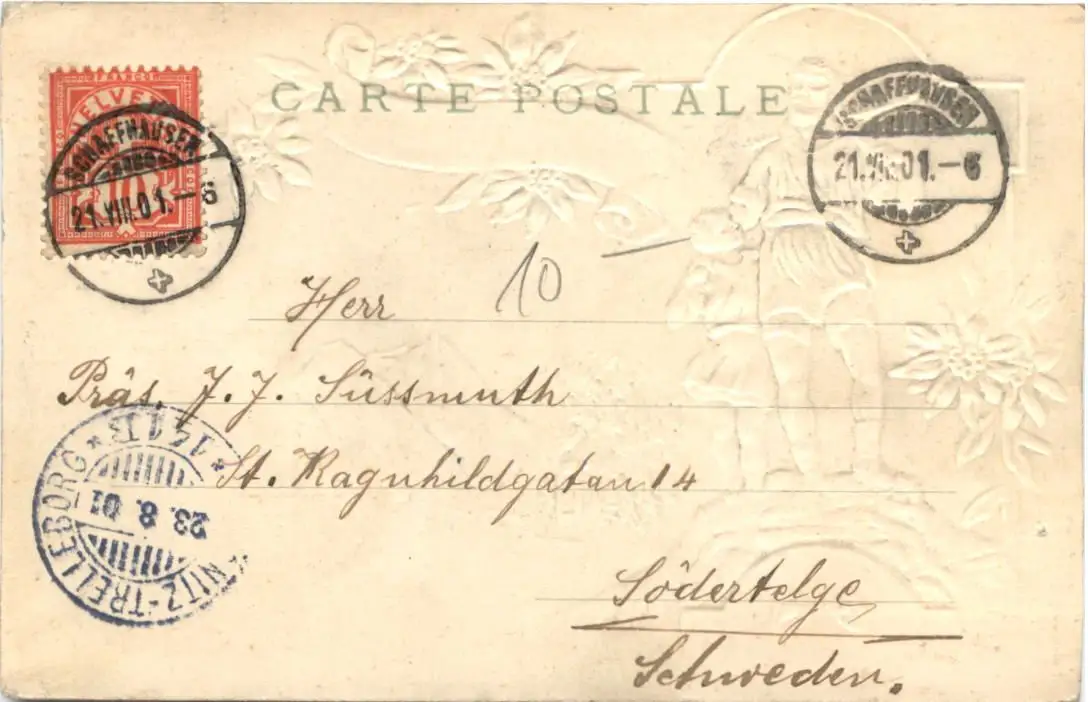 CARTE POSTALE
FRANCO
HELVETIA
10
SCHAFFHAUSEN
21.VIII.01.-6
SCHAFFHAUSEN
21.VIII.01.-6
10
Herr
Präs. J. J. Süssmuth
St. Ragnhildgatan 14
Södertelge
Schweden.
NITZ-TRELLEBORG
23.8.01